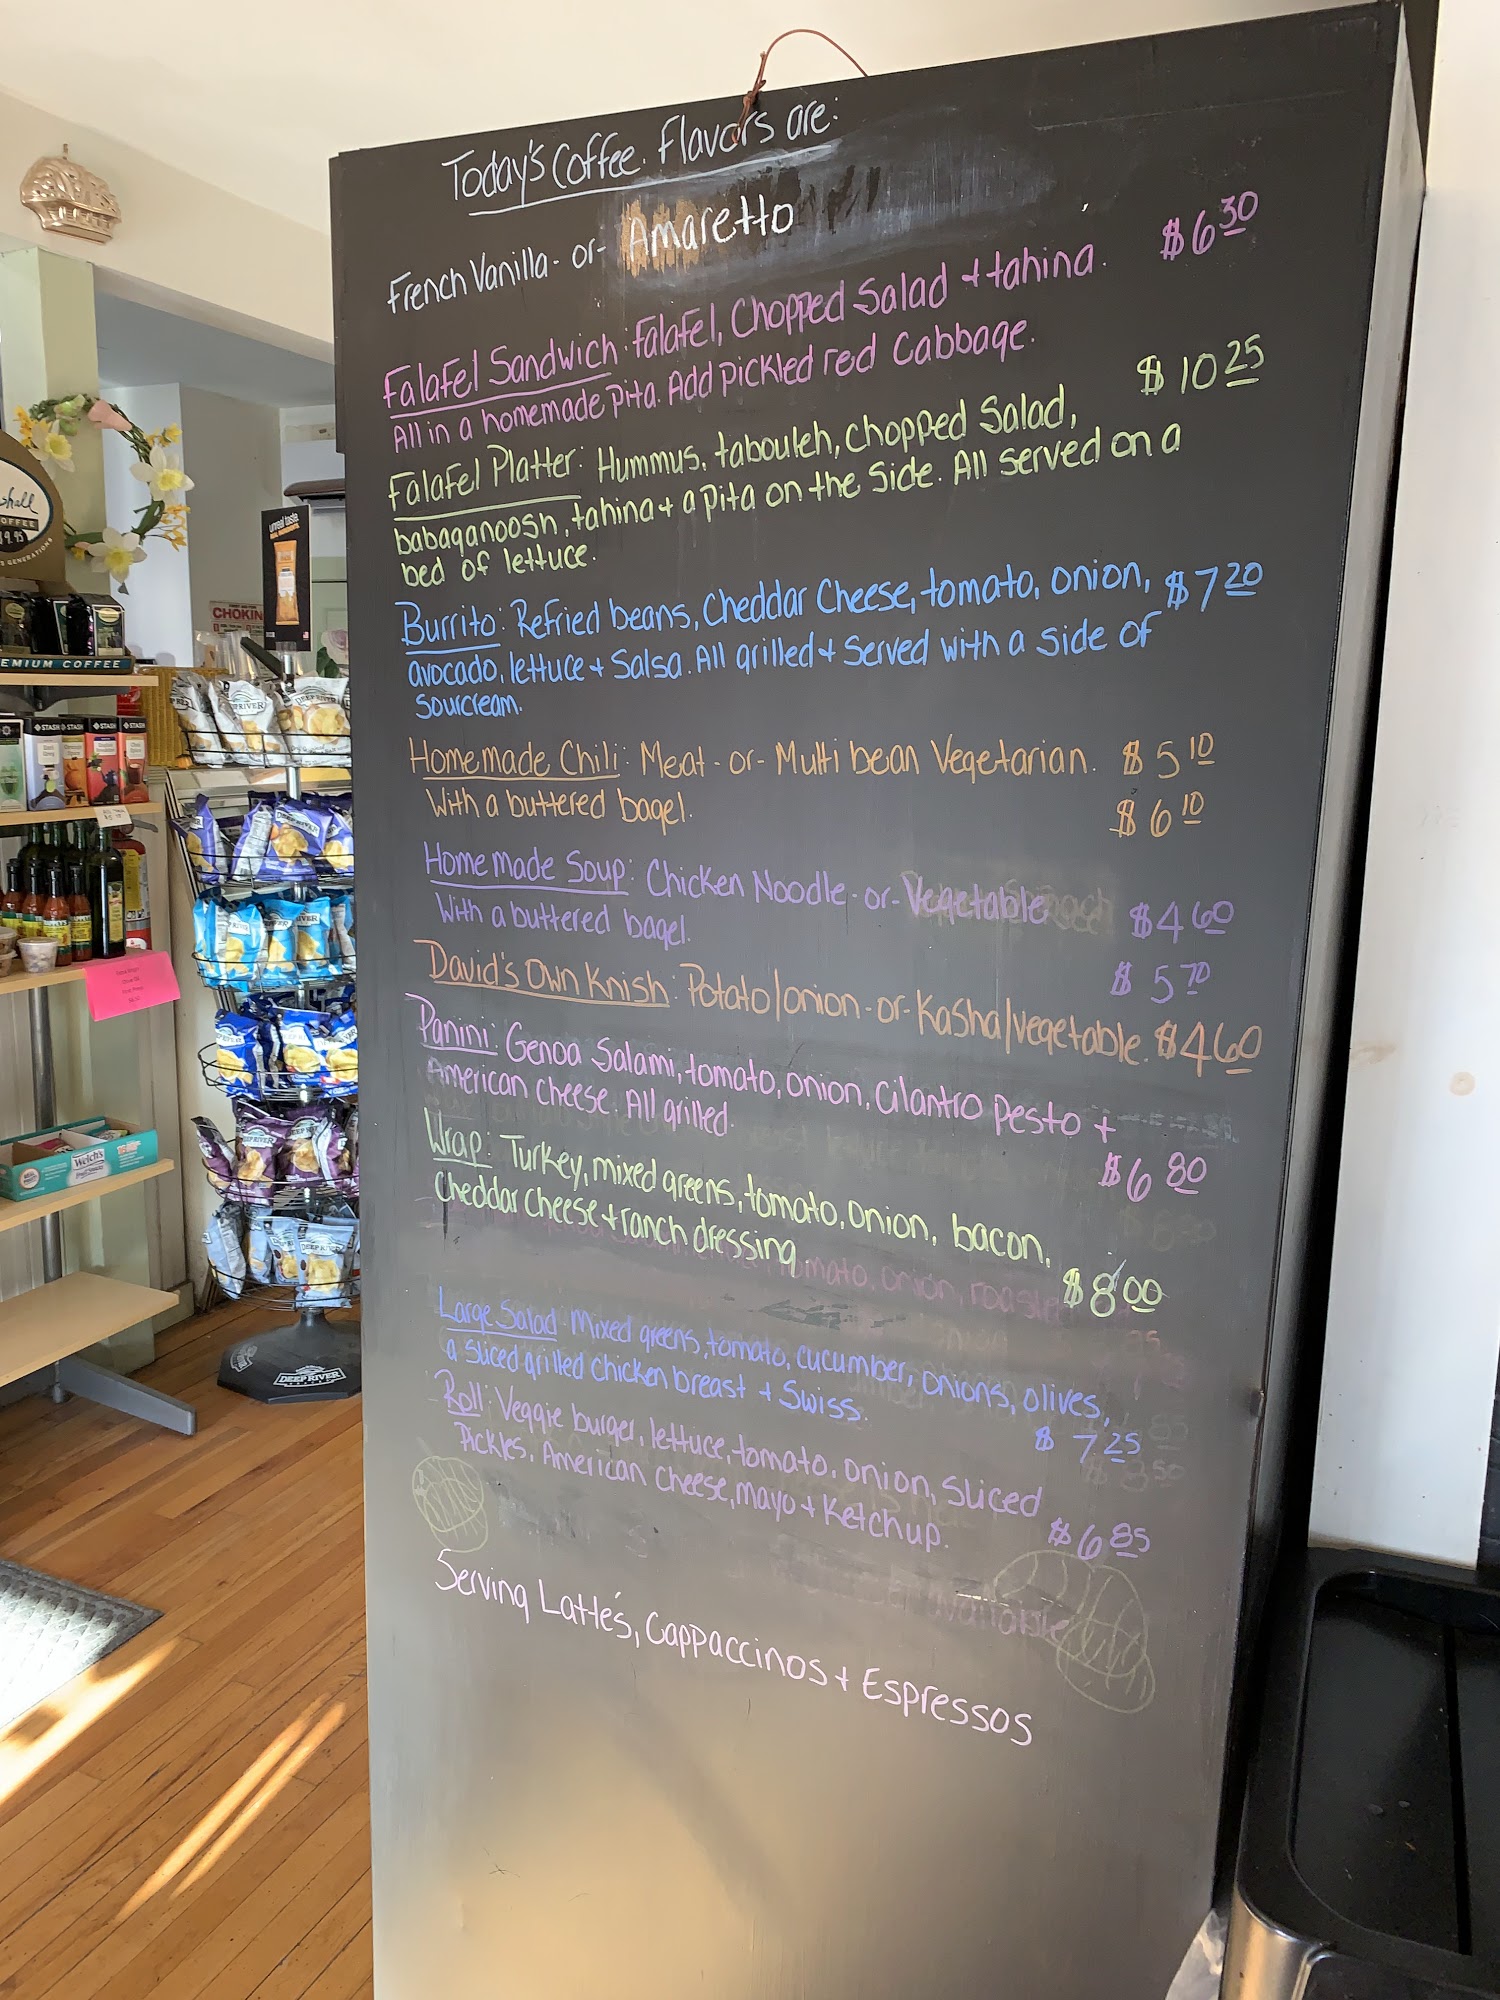 Today's Coffee Flavors are:
French Vanilla - or - Amaretto
Falafel Sandwich: Falafel, Chopped Salad + tahina. $6 30
All in a homemade pita. Add pickled red Cabbage.
Falafel Platter: Hummus, tabouleh, chopped Salad, $10 25
babaganoosh, tahina + a pita on the side. All served on a
bed of lettuce.
Burrito: Refried beans, Cheddar Cheese, tomato, onion, $7 20
avocado, lettuce + Salsa. All grilled + Served with a side of
Sourcream.
Homemade Chili: Meat - or - Multi bean Vegetarian. $5 10
With a buttered bagel. $6 10
Homemade Soup: Chicken Noodle - or - Vegetable $4 60
With a buttered bagel. $5 70
David's Own Knish: Potato/onion - or - Kasha/vegetable. $4 60
Panini: Genoa Salami, tomato, onion, Cilantro Pesto +
American Cheese. All grilled. $6 80
Wrap: Turkey, mixed greens, tomato, onion, bacon,
Cheddar Cheese + ranch dressing $8 00
Large Salad: Mixed greens, tomato, cucumber, onions, olives,
a sliced grilled chicken breast + Swiss. $7 25
Roll: Veggie burger, lettuce, tomato, onion, Sliced
Pickles, American Cheese, mayo + Ketchup. $6 85
Serving Latte's, Cappaccinos + Espressos
COFFEE
9.95
GENERATIONS
EMIUM COFFEE
STASH STASH STASH
unreal taste.
CHOKIN
DEEP RIVER
DEEP RIVER
DEEP RIVER
DEEP RIVER
Welch's
DEEP RIVER
DEEP RIVER